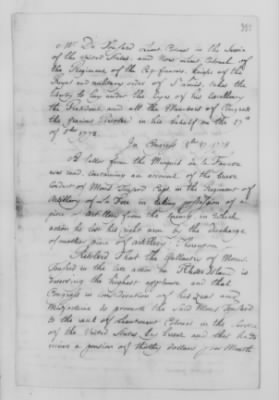 Mr. De Touzard Lieut Colonel in the Service
of the United States and Now Lieut Colonel of
the Regiment of the Cap francois, Knight of the
Royal and military order of St Louis, takes the
liberty to lay under the Eyes of his Excellency
the President and all the Members of Congress
the gracious Resolve in his behalf on the 27th
of 8ber 1778.
In Congress 8ber 27. 1778
A letter from the Marquis de la Fayette
was read containing an account of the
Conduct of Mons Touzard in the Regiment of
Artillery of La Fere in taking possession of a
piece of artillery from the Enemy in which
action he lost his right arm by the discharge
of another piece of artillery;
Resolved That the Gallantry of Mons.
Touzard in the late action in Rhode Island is
deserving the highest applause and that
Congress in consideration of his zeal and
Misfortune to promote the said Mons Touzard
to the rank of Lieutenant Colonel in the Service
of the United States by brevet and that he re
ceive a pension of thirty dollars per Month